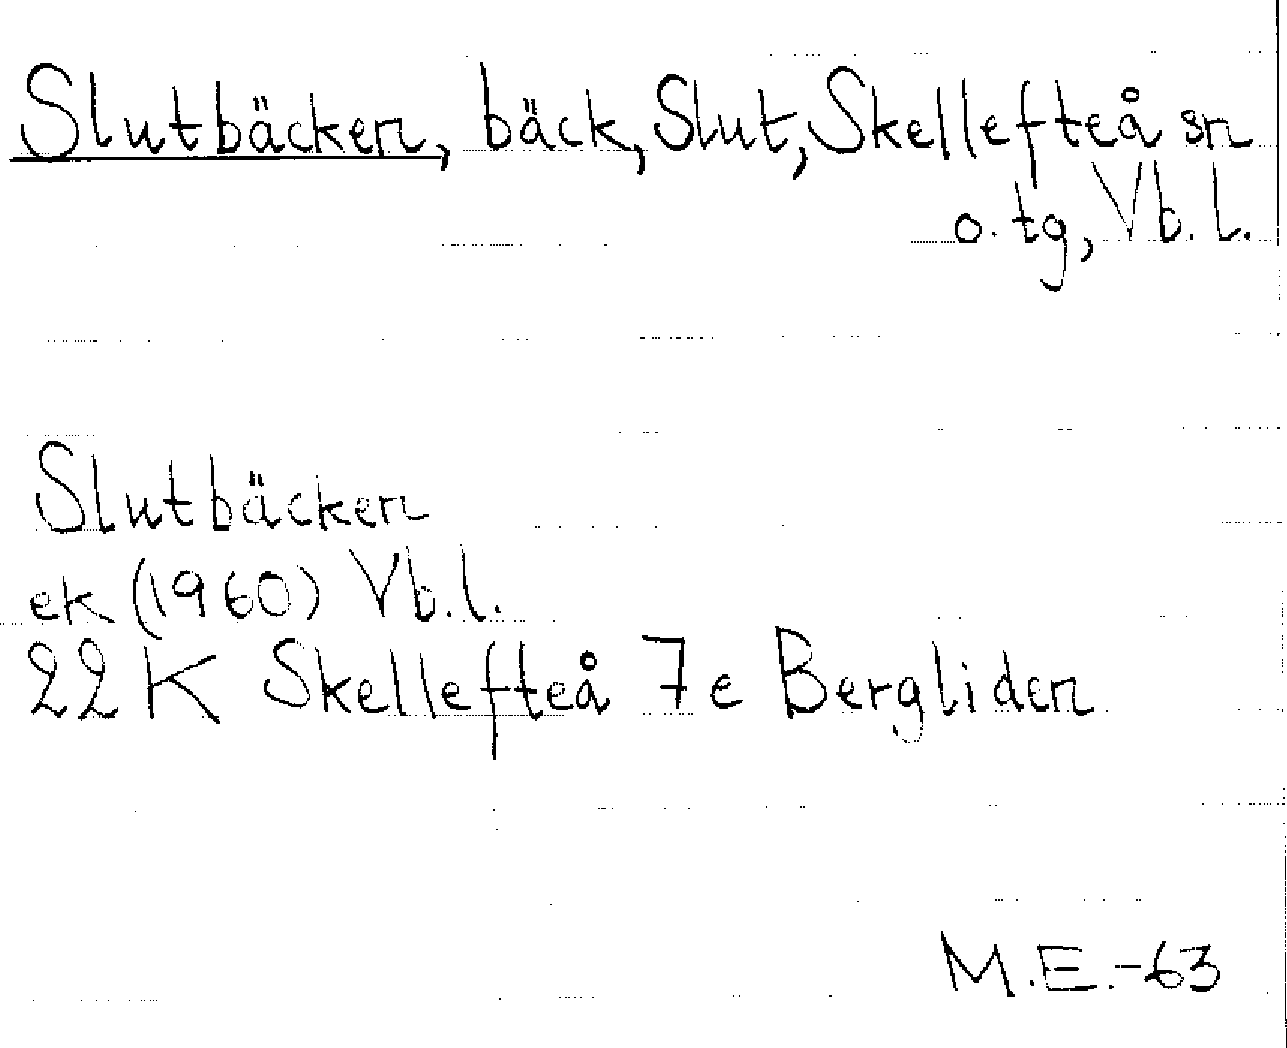 Slutbäcken, bäck, Slut, Skellefteå sn
o. tg, Vb. l.
Slutbäcken
ek (1960) Vb.l.
22 K Skellefteå 7e Bergliden
M.E.-63